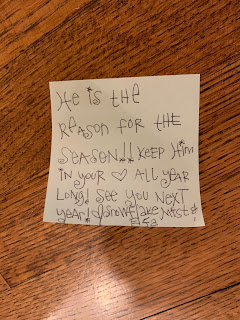 He is the
Reason for the
Season!! Keep Him
in your ♡ all year
long! See you next
year! Snowflake, Mist &